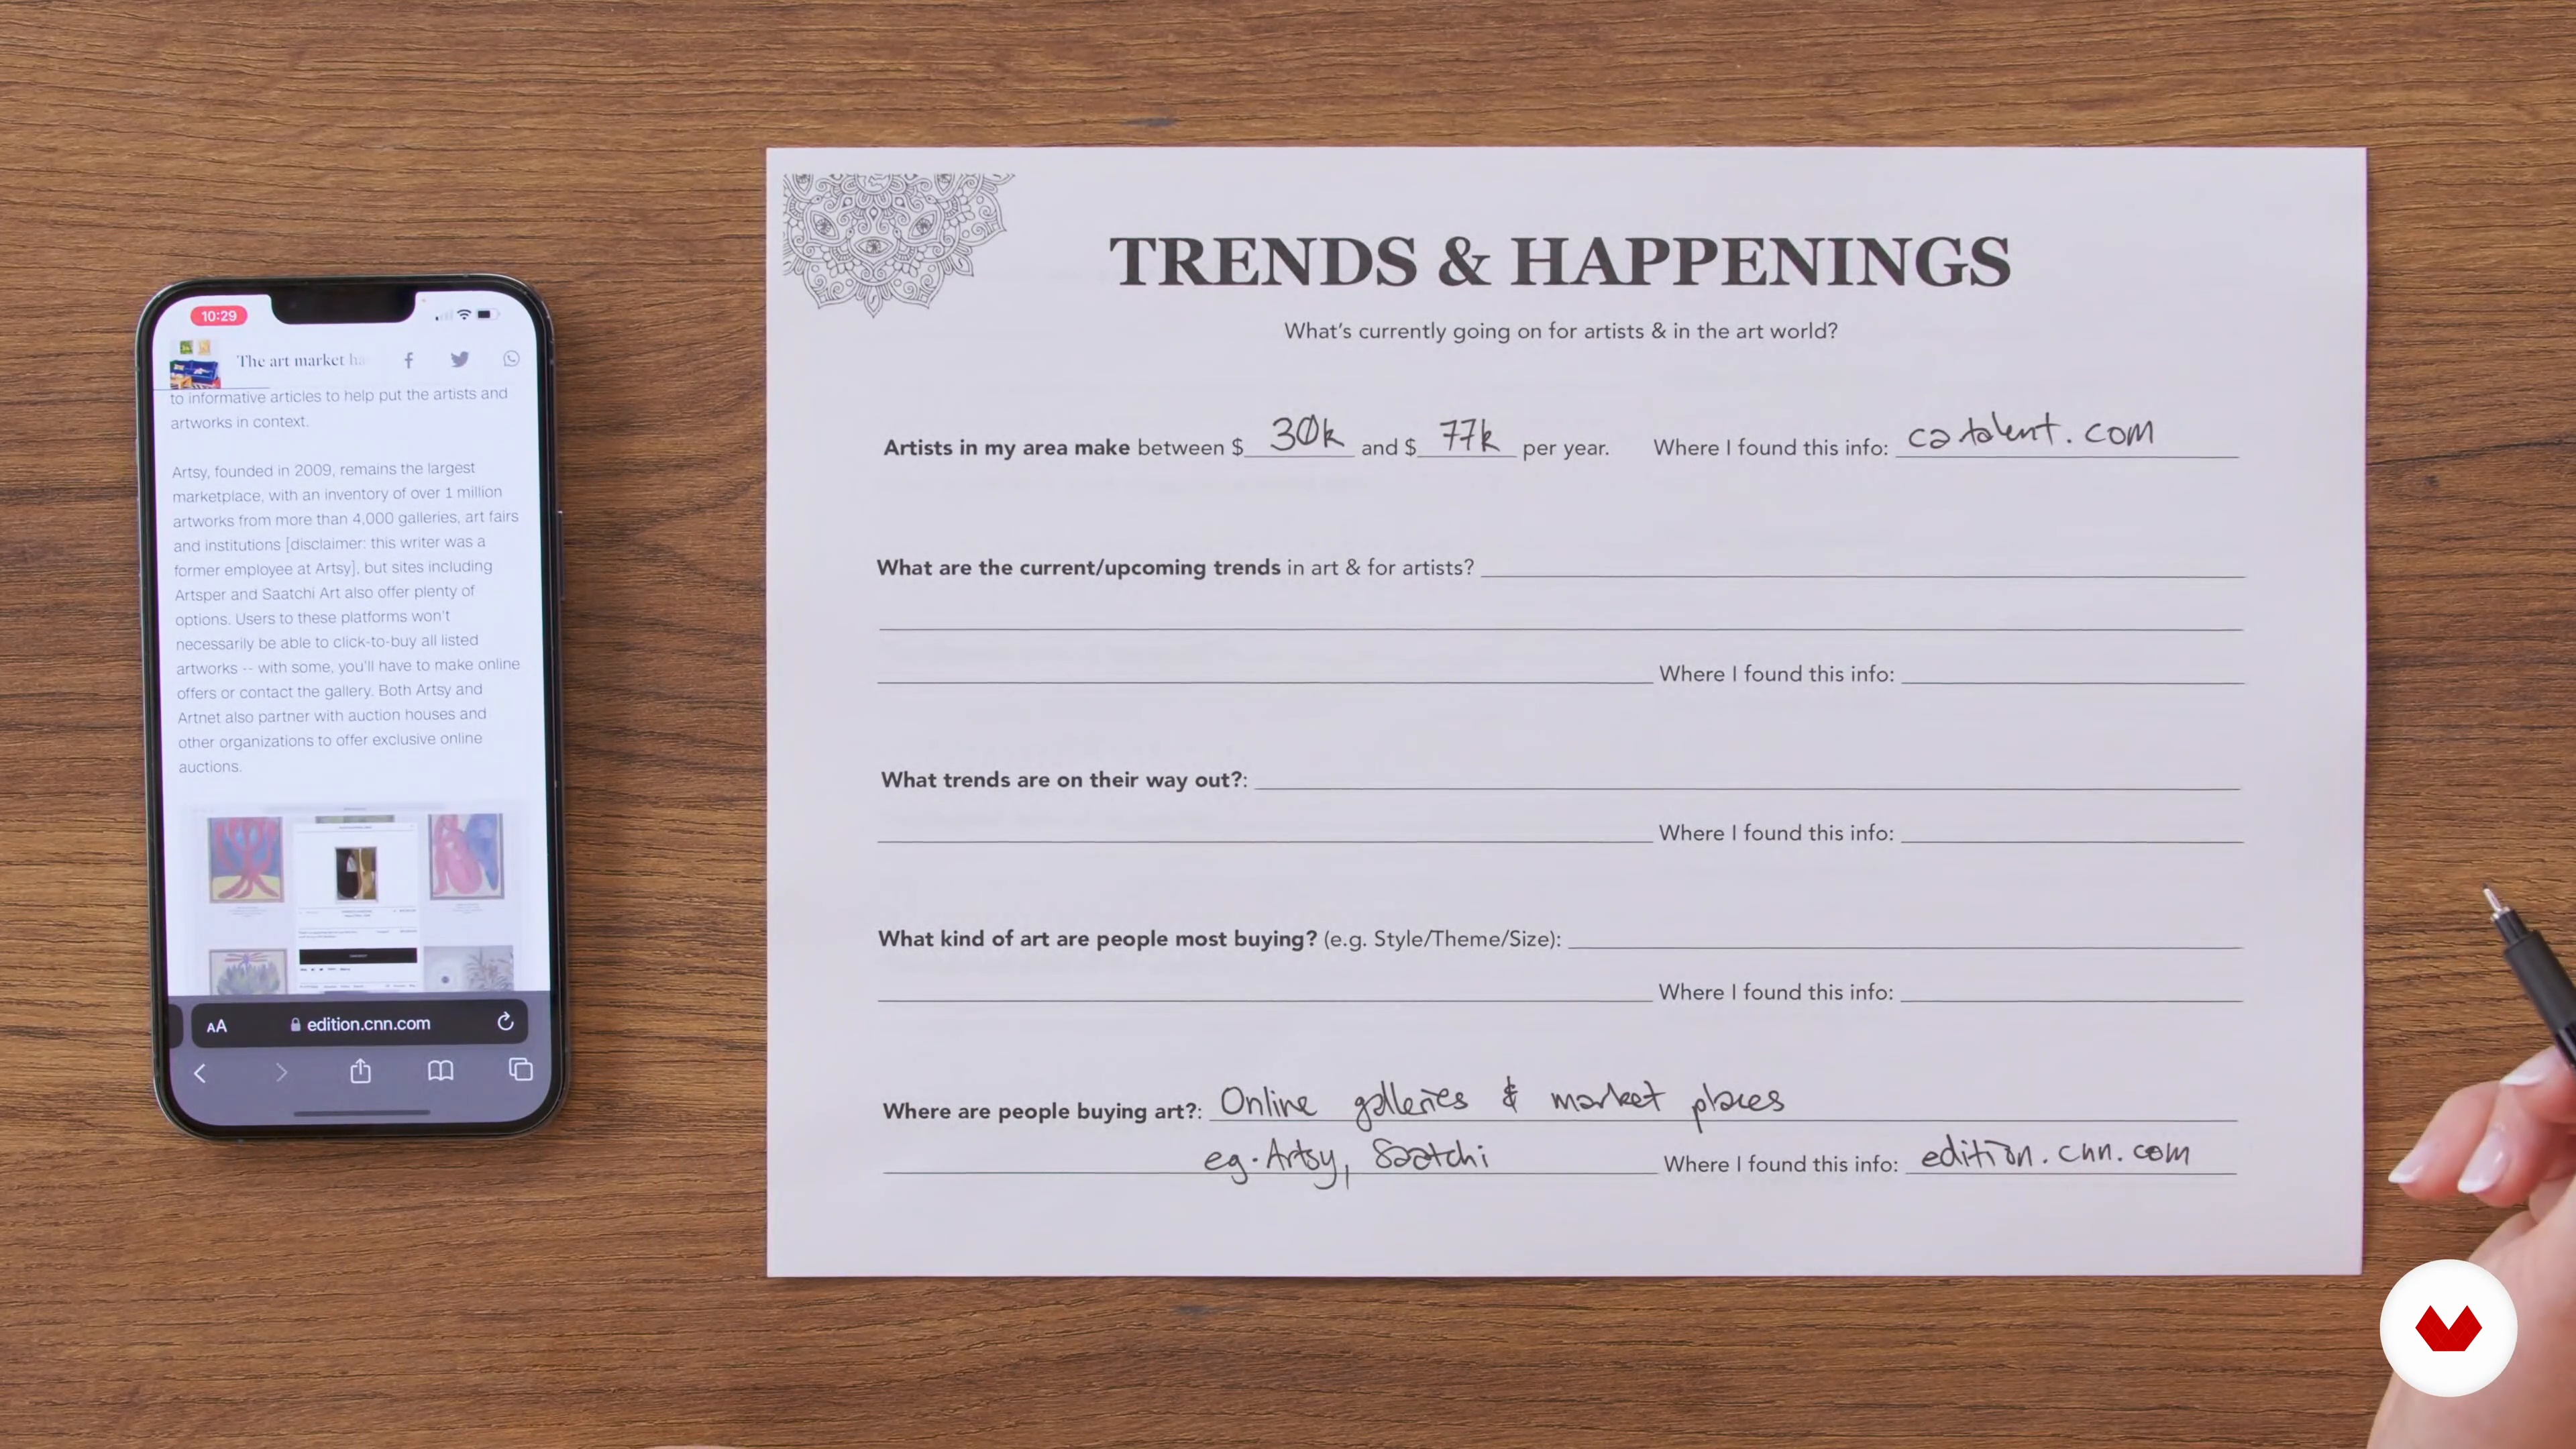 10:29
The art market ha
to informative articles to help put the artists and
artworks in context.
Artsy, founded in 2009, remains the largest
marketplace, with an inventory of over 1 million
artworks from more than 4,000 galleries, art fairs
and institutions [disclaimer: this writer was a
former employee at Artsy], but sites including
Artsper and Saatchi Art also offer plenty of
options. Users to these platforms won't
necessarily be able to click-to-buy all listed
artworks -- with some, you'll have to make online
offers or contact the gallery. Both Artsy and
Artnet also partner with auction houses and
other organizations to offer exclusive online
auctions.
AA edition.cnn.com
TRENDS & HAPPENINGS
What's currently going on for artists & in the art world?
Artists in my area make between $ 30k and $ 77k per year. Where I found this info: catalent.com
What are the current/upcoming trends in art & for artists?
Where I found this info:
What trends are on their way out?:
Where I found this info:
What kind of art are people most buying? (e.g. Style/Theme/Size):
Where I found this info:
Where are people buying art?: Online galleries & market places
eg. Artsy, Saatchi Where I found this info: edition.cnn.com